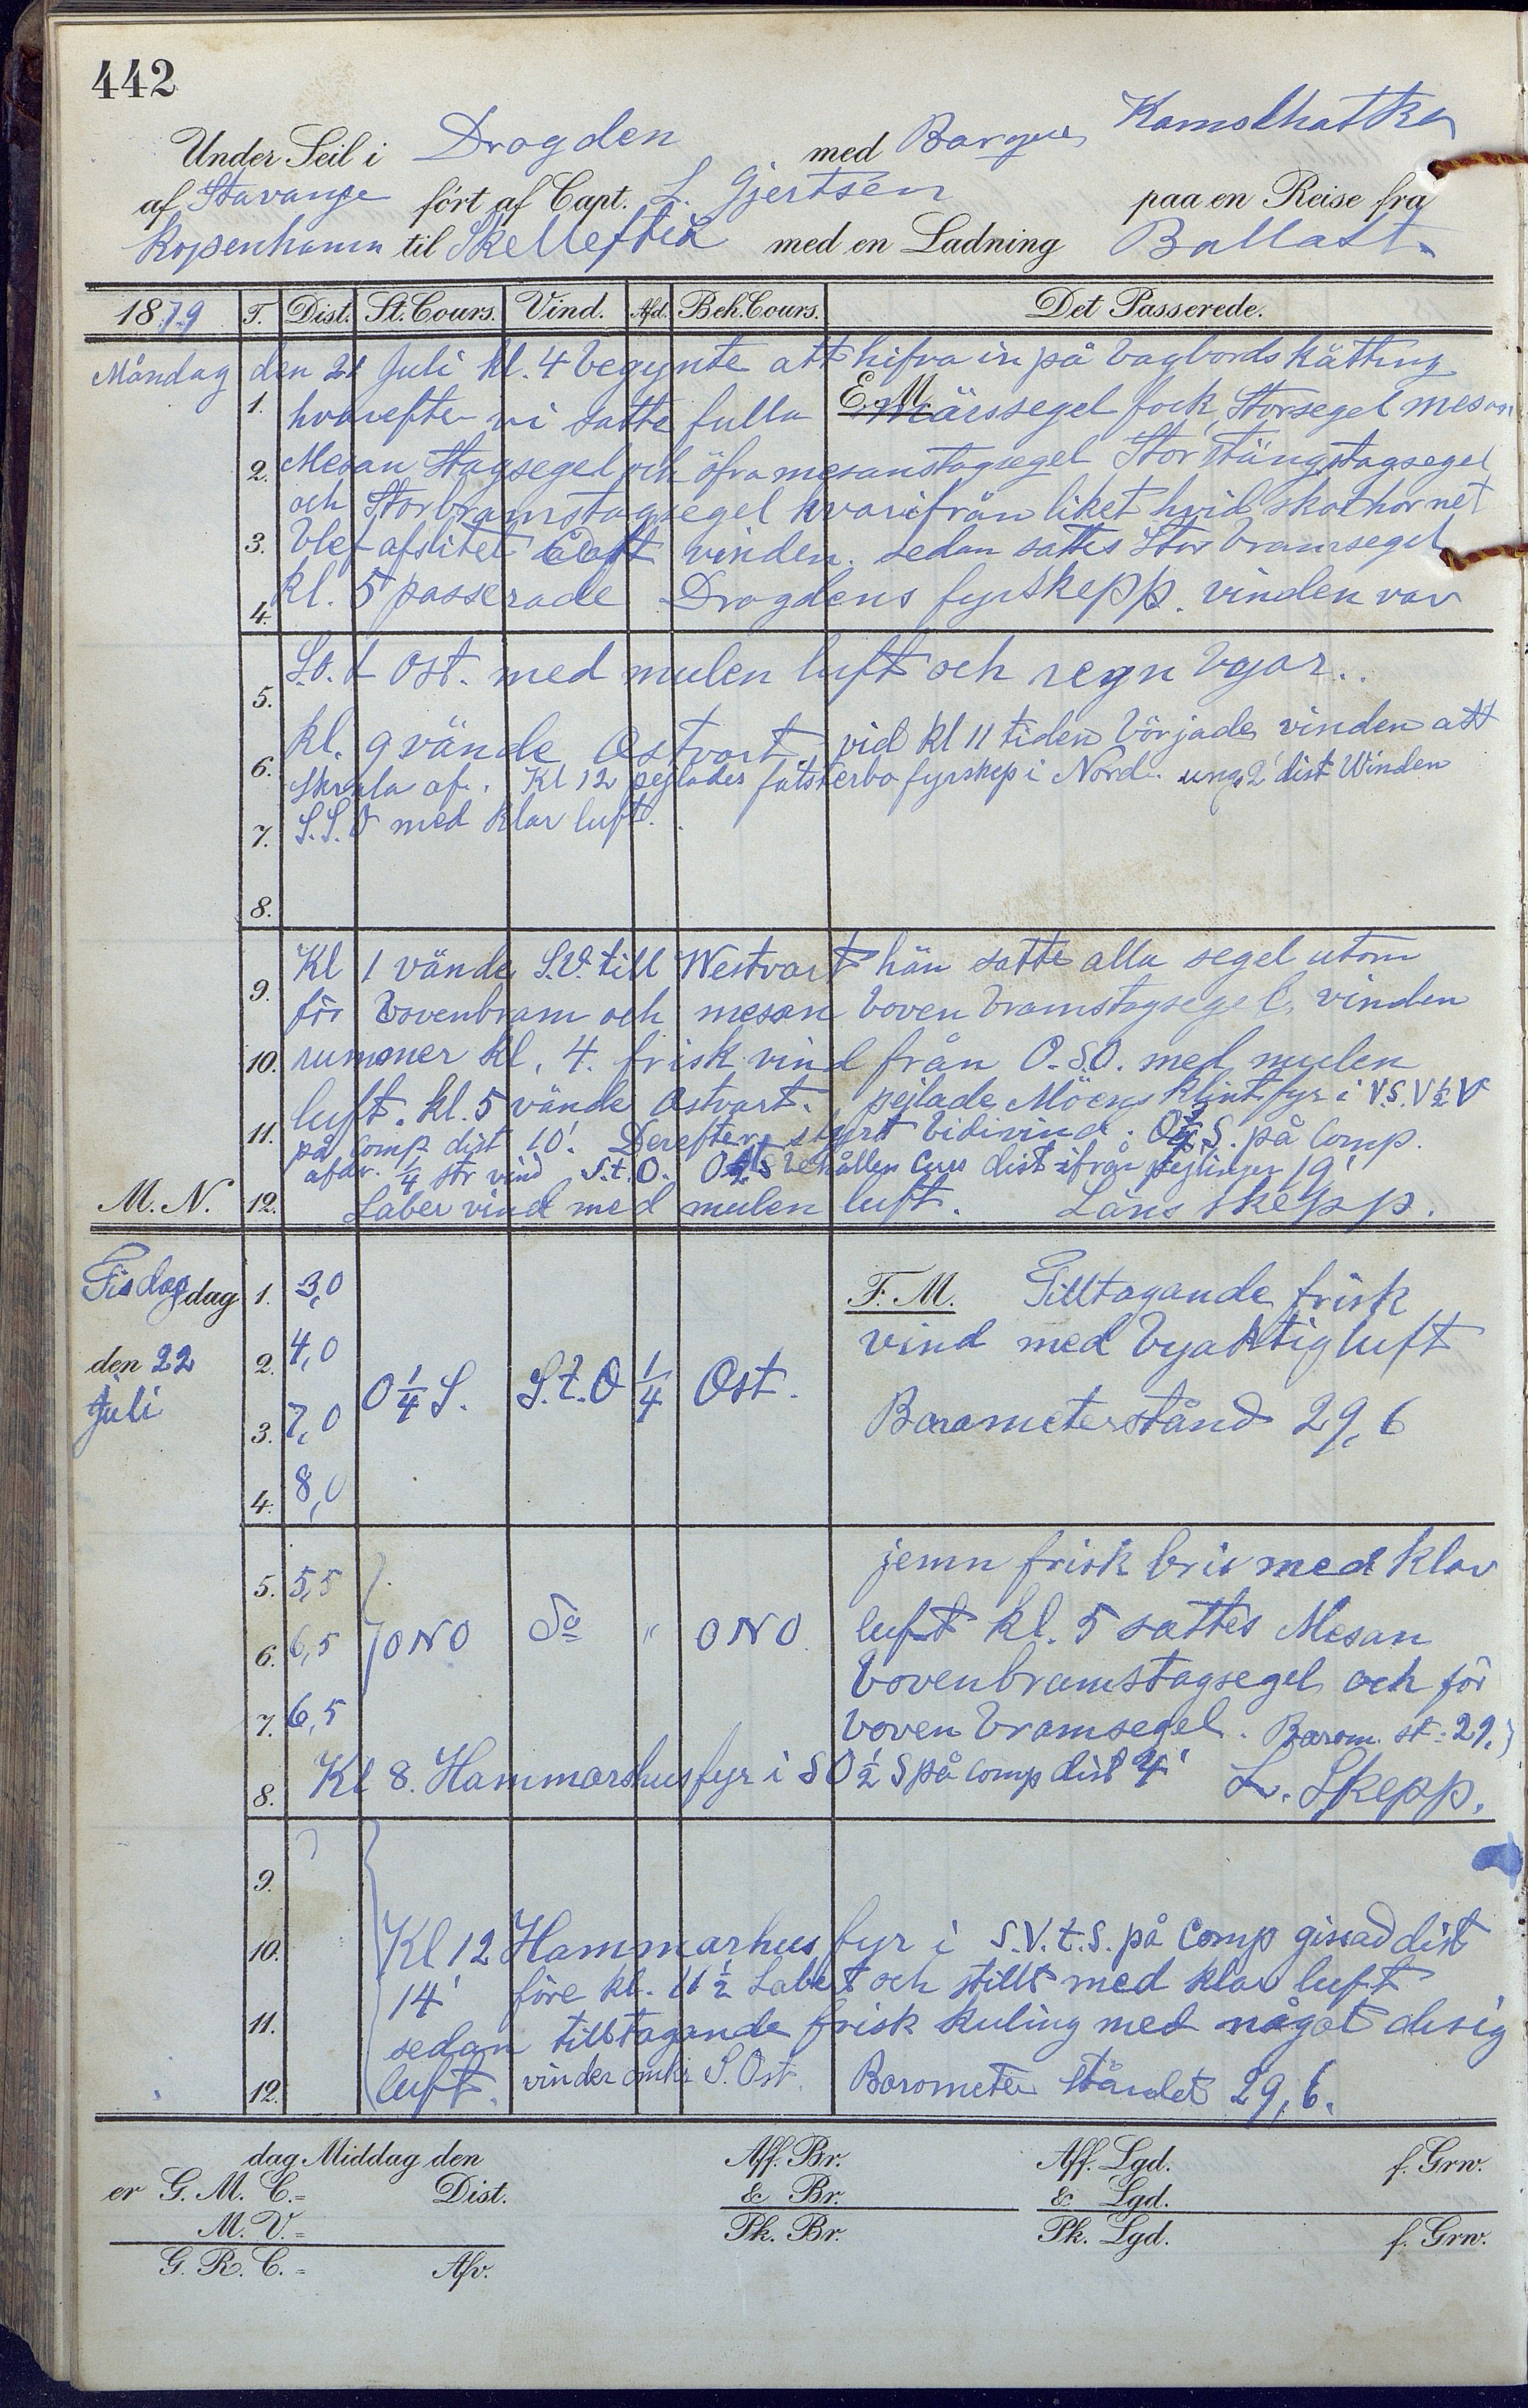 442
Under Seil i Drogden med Barque Kamschatka
af Stavange fört af Capt. L. Gjertsen paa en Reise fra
Kopenhamn til Skelleftiå med en Ladning Ballast.
1879 T. Dist. St. Cours. Vind. Afd. Beh. Cours. Det Passerede.
Måndag den 21 Juli kl. 4 begynte att hifva in på bagbords kätting
E. M.
1. hvarefter vi satte fulla märssegel fock, Storsegel mesan
2. Mesan Stagsegel och öfra mesanstagsegel Storstängstagsegel
och Storbramstagsegel hvarifrån liket hvid skothornet
3. blef afslitet vinden. sedan sattes Stor bramsegel
4. kl. 5 passerade Drogdens fyrskepp. vinden var
5. S.O. t Ost. med mulen luft och regn byar..
6. kl. 9 vände Ostvart, vid kl 11 tiden började vinden att
skrala af. Kl 12 pejlades falsterbo fyrskep i Nord. ung. 2' dist Winden
7. S.S.O med klar luft.
8.
9. Kl 1 vände S.V. till Westvart hän satte alla segel utom
för bovenbram och mesan boven bramstagsegel, vinden
10. rummer kl. 4. frisk vind från O.S.O. med mulen
luft. kl. 5 vände Ostvart. pejlade Möens klint fyr i V.S.V ½ V
11. på Comp dist 10'. Derefter styrt bidivind. O ¼ S. på Comp.
afdr. ¼ str vind S.t.O. behållen Curs dist ifrån pejlingen 19'
M. N. 12. Laber vind med mulen luft. Läns skepp.
Tisdag dag 1. 3,0 F. M. Tilltagande frisk
den 22 2. 4,0 O ¼ S. S.t.O ¼ Ost. vind med byaktig luft
Juli 3. 7,0 Barometerstånd 29,6
4. 8,0
5. 5,5 jemn frisk bris med klar
6. 6,5 ONO Do " ONO luft kl. 5 sattes Mesan
bovenbramstagsegel och för
7. 6,5 boven bramsegel. Barom. st. 29,
8. Kl 8. Hammarshus fyr i SO ½ S på Comp dist 4' L. Skepp.
9.
10. Kl 12 Hammarhus fyr i S.V.t.S. på Comp gissad dist
14' före kl. 11 ½ Labert och stillt med klar luft
11. sedan tilltagande frisk kuling med något disig
12. luft. vinden omkr S. Ost. Barometer ståndet 29,6.
dag Middag den Aff. Br. Aff. Lgd. f. Grw.
er G. M. C.= Dist. & Br. & Lgd.
M. V.= Pk. Br. Pk. Lgd. f. Grw.
G. R. C.= Afv.